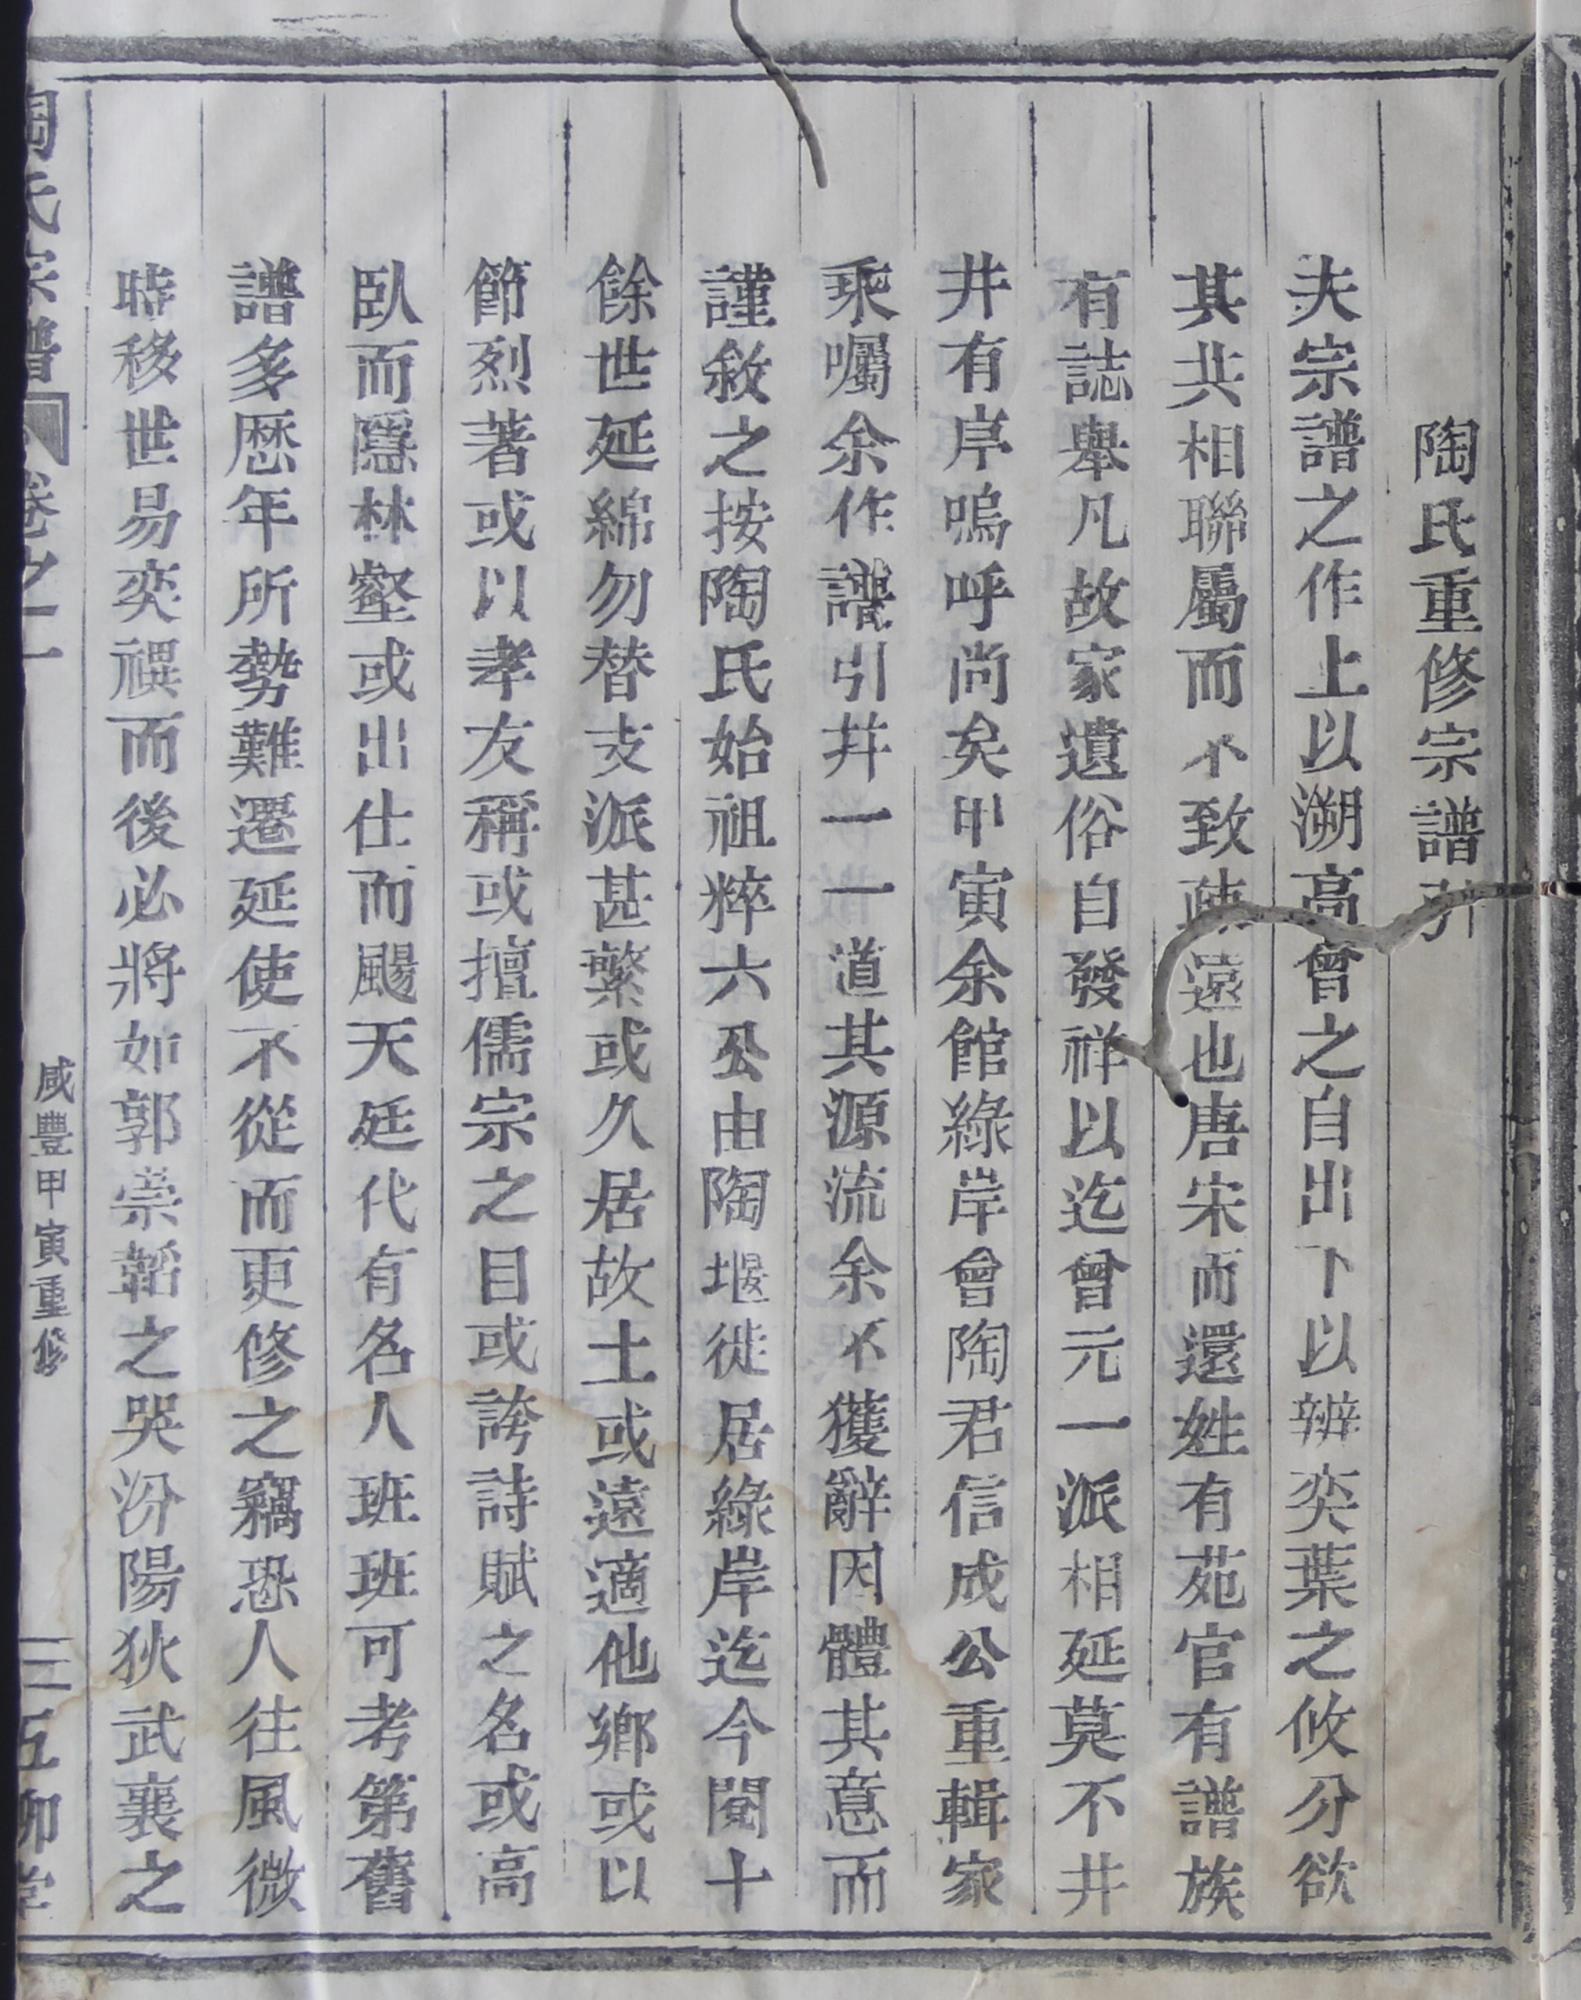 陶氏重修宗譜引
夫宗譜之作上以溯高曾之自出下以辨奕葉之攸分欲
其共相聯屬而不致疎遠也唐宋而還姓有苑官有譜族
有誌舉凡故家遺俗自發祥以迄曾元一派相延莫不井
井有序嗚呼尚矣甲寅余館綠岸曾陶君信成公重輯家
乘囑余作譜引并一一道其源流余不獲辭因體其意而
謹敘之按陶氏始祖粹六公由陶堰徙居綠岸迄今閱十
餘世延綿勿替支派甚繁或久居故土或遠適他鄉或以
節烈著或以孝友稱或擅儒宗之目或誇詩賦之名或高
臥而隱林壑或出仕而颺天廷代有名人班班可考第舊
譜多歷年所勢難遷延使不從而更修之竊恐人往風微
時移世易奕禩而後必將如郭崇韜之哭汾陽狄武襄之
陶氏宗譜 卷之一 咸豐甲寅重修 三 五柳堂